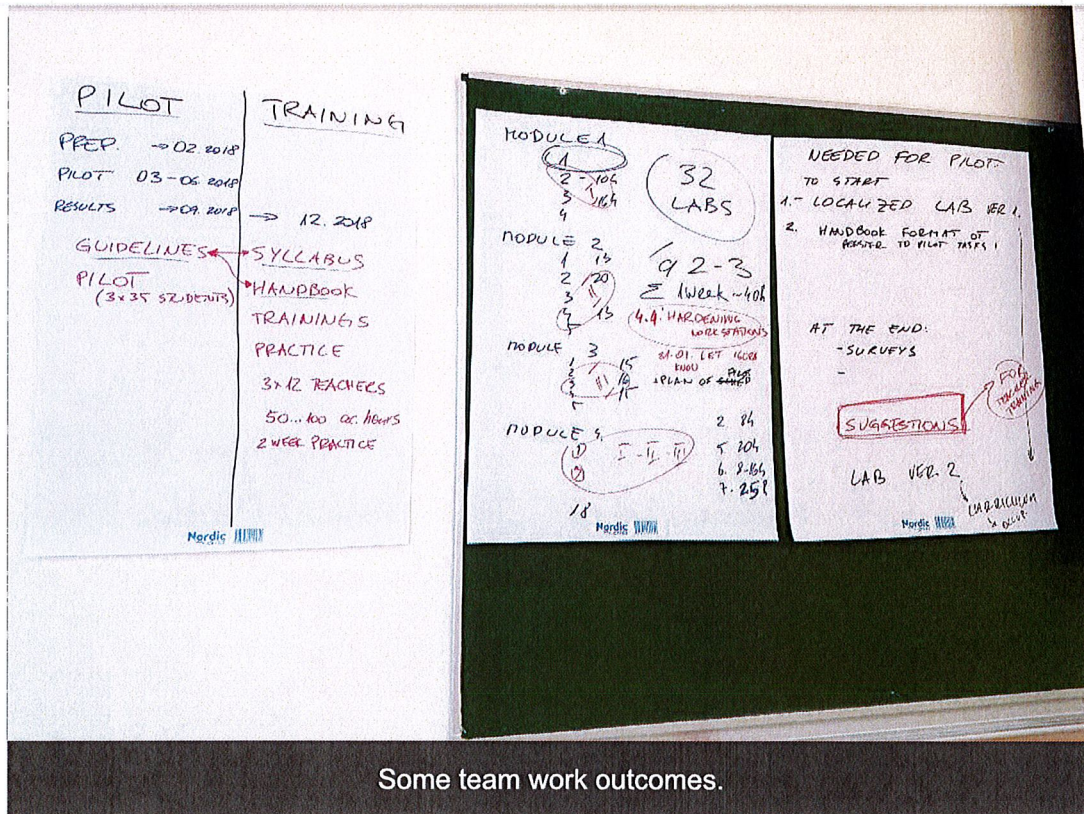 PILOT
PREP. → 02.2018
PILOT 03-06 2018
RESULTS → 09.2018 → 12.2018
GUIDELINES
PILOT
(3x35 STUDENTS)
TRAINING
SYLLABUS
HANDBOOK
TRAININGS
PRACTICE
3x12 TEACHERS
50...100 ac. hours
2 WEEK PRACTICE
Nordic
MODULE 1
1
2 - 10h
3 16h
4
32
LABS
MODULE 2
1 13
2 20
3 II
4 13
2-3
Σ 1week ~40h
4.4. HARDENING
WORKSTATIONS
MODULE 3
1 15
2 16
3 III 15
31.01. LET
KNOW
PLAN OF PILOT
MODULE 4.
① I - II - III
②
18
2. 8h
5. 20h
6. 8-16h
7. 25h
Nordic
NEEDED FOR PILOT
TO START
1.- LOCALIZED LAB VER 1.
2. HANDBOOK FORMAT OF
TO PILOT TASKS
AT THE END:
- SURVEYS
-
SUGGESTIONS
FOR
TEACHER
TRAINING
LAB VER. 2
CURRICULUM
Nordic
Some team work outcomes.